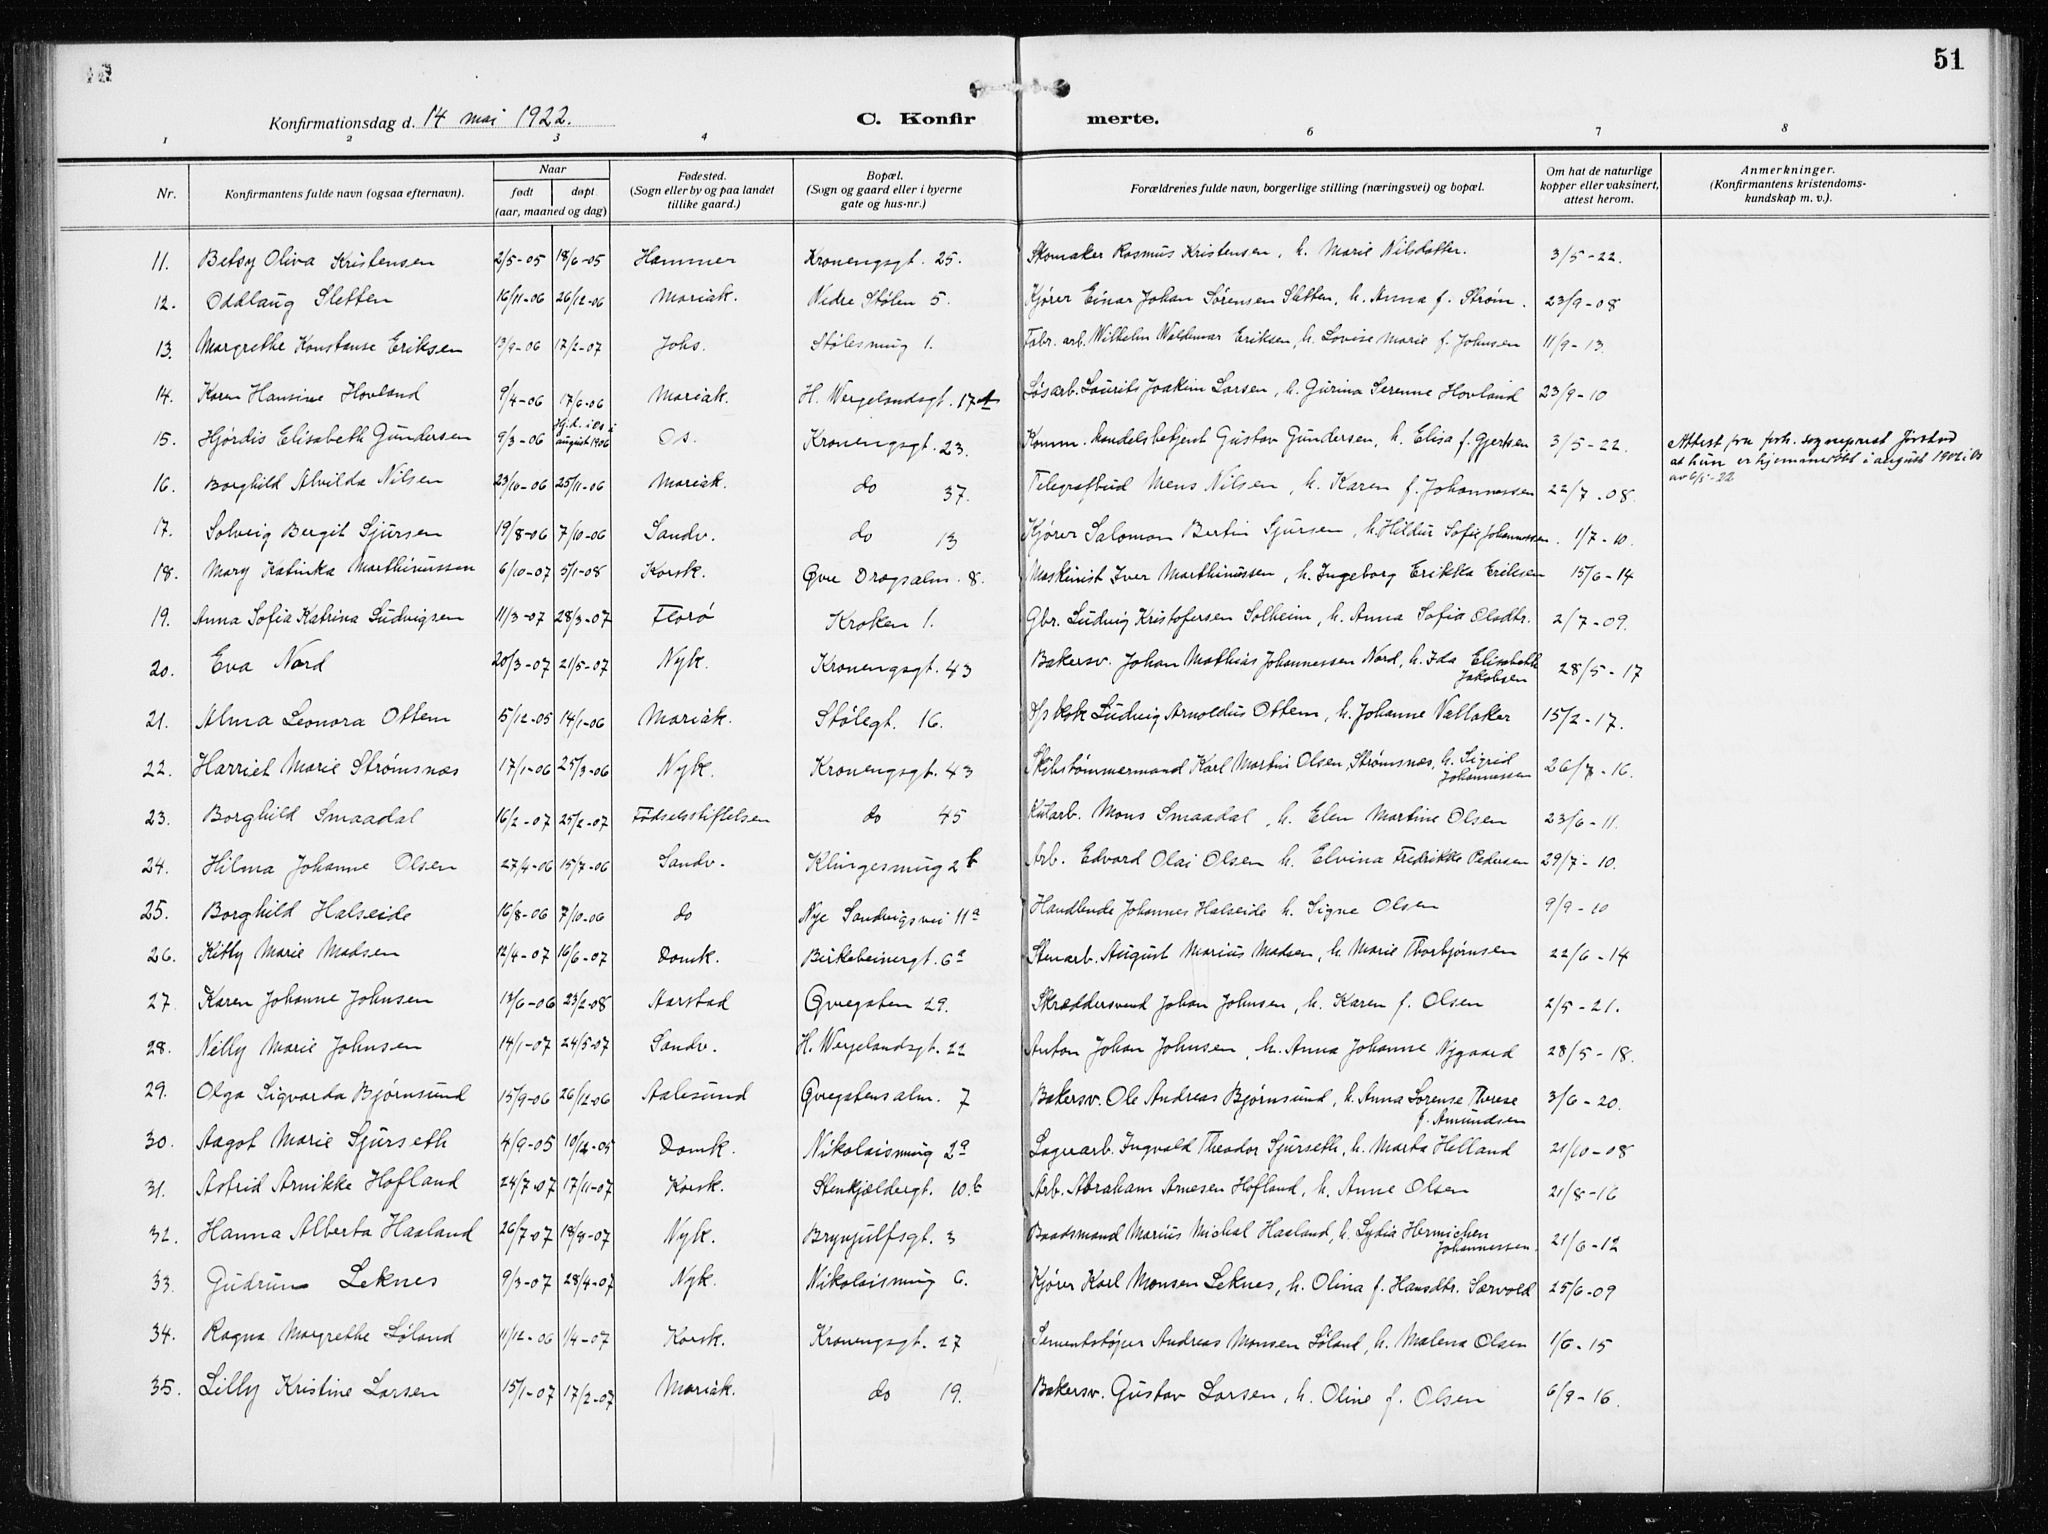 51
Konfirmationsdag d. 14 mai 1922. C. Konfir merte.
1 2 3 4 6 7 8
Nr. Konfirmantens fulde navn (ogsaa efternavn). Naar født døpt (aar, maaned og dag) Fødested. (Sogn eller by og paa landet tillike gaard.) Bopæl. (Sogn og gaard eller i byerne gate og hus-nr.) Forældrenes fulde navn, borgerlige stilling (næringsvei) og bopæl. Om hat de naturlige kopper eller vaksinert, attest herom. Anmerkninger. (Konfirmantens kristendoms-kundskap m. v.).
11. Betsy Oliva Kristensen 2/5-05 18/6-05 Hammer Kronengsgt. 25. Skomaker Rasmus Kristensen, h. Marie Nilsdatter. 3/5-22.
12. Oddlaug Sletten 16/11-06 26/12-06 Mariak. Nedre Stølen 5. Kjører Einar Johan Sørensen Sletten, h. Anna f. Strøm. 23/9-08
13. Margrethe Konstanse Eriksen 13/9-06 17/2-07 Johs. Stølesmug 1. Fabr. arb. Wilhelm Waldemar Eriksen, h. Lovise Marie f. Johnsen 11/9-13.
14. Karen Hansine Hovland 9/4-06 17/6-06 Mariak. H. Wergelandsgt. 17 A Løsarb. Laurits Joakim Larsen, h. Gurina Serenne Hovland 23/9-10
15. Hjørdis Elisabeth Gundersen 9/3-06 Hj.d. i Os i august 1906 Os. Kronengsgt. 23. Komm. handelsbetjent Gustav Gundersen, h. Elisa f. Gjertsen 3/5-22. Attest fra forh. sogneprest Jørstad
at hun er hjemmedøbt i august 1906 i Os
av 6/5-22
16. Borghild Alvilda Nilsen 23/10-06 25/11-06 Mariak. do 37. Telegrafbud Mens Nilsen, h. Karen f. Johannessen 22/7-08.
17. Solveig Bergit Sjursen 19/8-06 7/10-06 Sandv. do 13 Kjører Salomon Bertin Sjursen, h. Hildur Sofie Johannessen. 1/7-10.
18. Mary Katinka Marthinussen 6/10-07 5/1-08 Korsk. Øvre Dragsalm. 8. Maskinist Iver Marthinussen, h. Ingeborg Erikka Eriksen 15/6-14
19. Anna Sofia Katrina Ludvigsen 11/3-07 28/3-07 Florø Kroken 1. Gbr. Ludvig Kristofersen Solheim, h. Anna Sofia Olsdtr. 2/7-09.
20. Eva Nord 20/3-07 21/5-07 Nyk. Kronengsgt. 43 Bakersv. Johan Mathias Johannessen Nord, h. Ida Elisabeth Jakobsen 28/5-17
21. Alma Leonora Ottem 5/12-05 14/1-06 Mariak. Stølegt. 16. Ludvig Arnoldus Ottem, h. Johanne Vallaker 15/2-17.
22. Harriet Marie Strømsnæs 17/1-06 25/3-06 Nyk. Kronengsgt. 43 Skibstømmermand Karl Martin Olsen Strømsnes, h. Sigrid Johannessen 26/7-16.
23. Borghild Smaadal 16/2-07 25/2-07 Fødselsstiftelsen do 45 Kularb. Mons Smaadal, h. Elen Martine Olsen 23/6-11.
24. Hilma Johanne Olsen 27/4-06 15/7-06 Sandv. Klingesmug 2b Arb. Edvard Olai Olsen h. Elvina Fredrikke Pedersen 29/7-10.
25. Borghild Halseide 16/8-06 7/10-06 do Nye Sandvigsvei 11a Handlende Johannes Halseide h. Signe Olsen 9/9-10
26. Kitty Marie Madsen 12/4-07 16/6-07 Domk. Birkebeinergt. 6a Stenarb. August Marius Madsen, h. Marie Thorbjørnsen 22/6-14
27. Karen Johanne Johnsen 13/6-06 23/2-08 Aarstad Øvregaten 29. Skræddersvend Johan Johnsen, h. Karen f. Olsen 2/5-21.
28. Nelly Marie Johnsen 14/1-07 24/5-07 Sandv. H. Wergelandsgt. 22 Anton Johan Johnsen, h. Anna Johanne Nygaard 28/5-18.
29. Olga Sigvarda Bjørnsund 15/9-06 26/12-06 Aalesund Øvregatensalm. 7 Bakersv. Ole Andreas Bjørnsund, h. Anna Sørense Therese f. Amundsen 3/6-20.
30. Aagot Marie Sjurseth 4/9-05 10/12-05 Domk. Nikolaismug 2a Lagerarb. Ingvald Theodor Sjurseth, h. Marta Helland 21/10-08
31. Astrid Arnikke Hofland 24/7-07 17/11-07 Korsk. Stenkjeldergt. 10.b Arb. Abraham Arnesen Hofland, h. Anne Olsen 21/8-16
32. Hanna Alberta Haaland 26/7-07 18/9-07 Nyk. Brynjulfsgt. 3 Baadsmand Marius Michal Haaland, h. Lydia Hermichen Johannessen. 21/6-12
33. Gudrun Leknes 9/3-07 28/4-07 Nyk. Nikolaismug 6. Kjører Karl Monsen Leknes, h. Olina f. Hansdtr. Særvold 25/6-09
34. Ragna Margrethe Søland 11/12-06 1/4-07 Korsk. Kronengsgt. 27 Sementstøper Andreas Monsen Søland, h. Malena Olsen 1/6-15
35. Lilly Kristine Larsen 15/1-07 17/2-07 Mariak. do 19. Bakersv. Gustav Larsen, h. Oline f. Olsen 6/9-16.